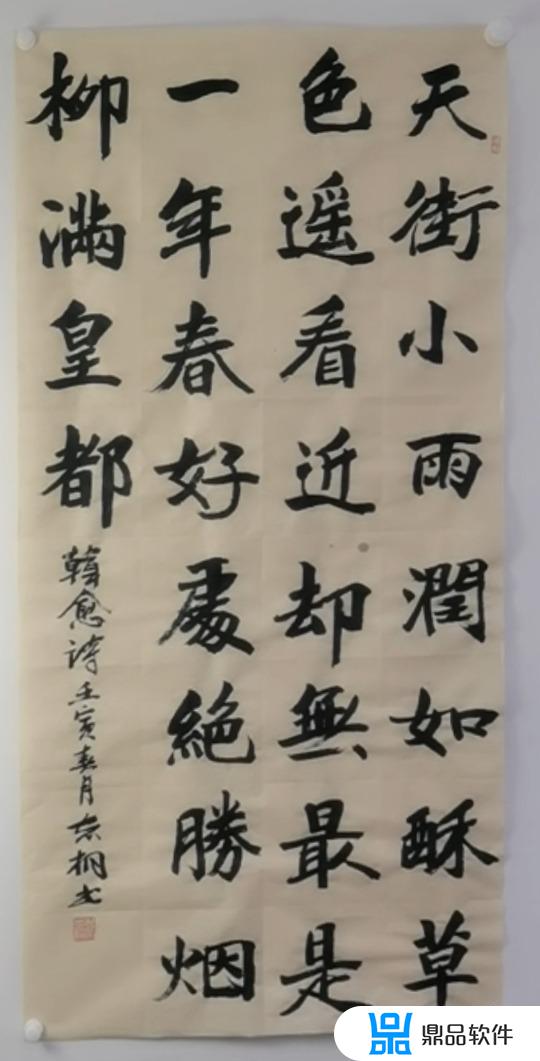 天街小雨潤如酥草
色遥看近却無最是
一年春好處絶勝烟
柳滿皇都
韓愈詩壬寅春月
鼎品软件